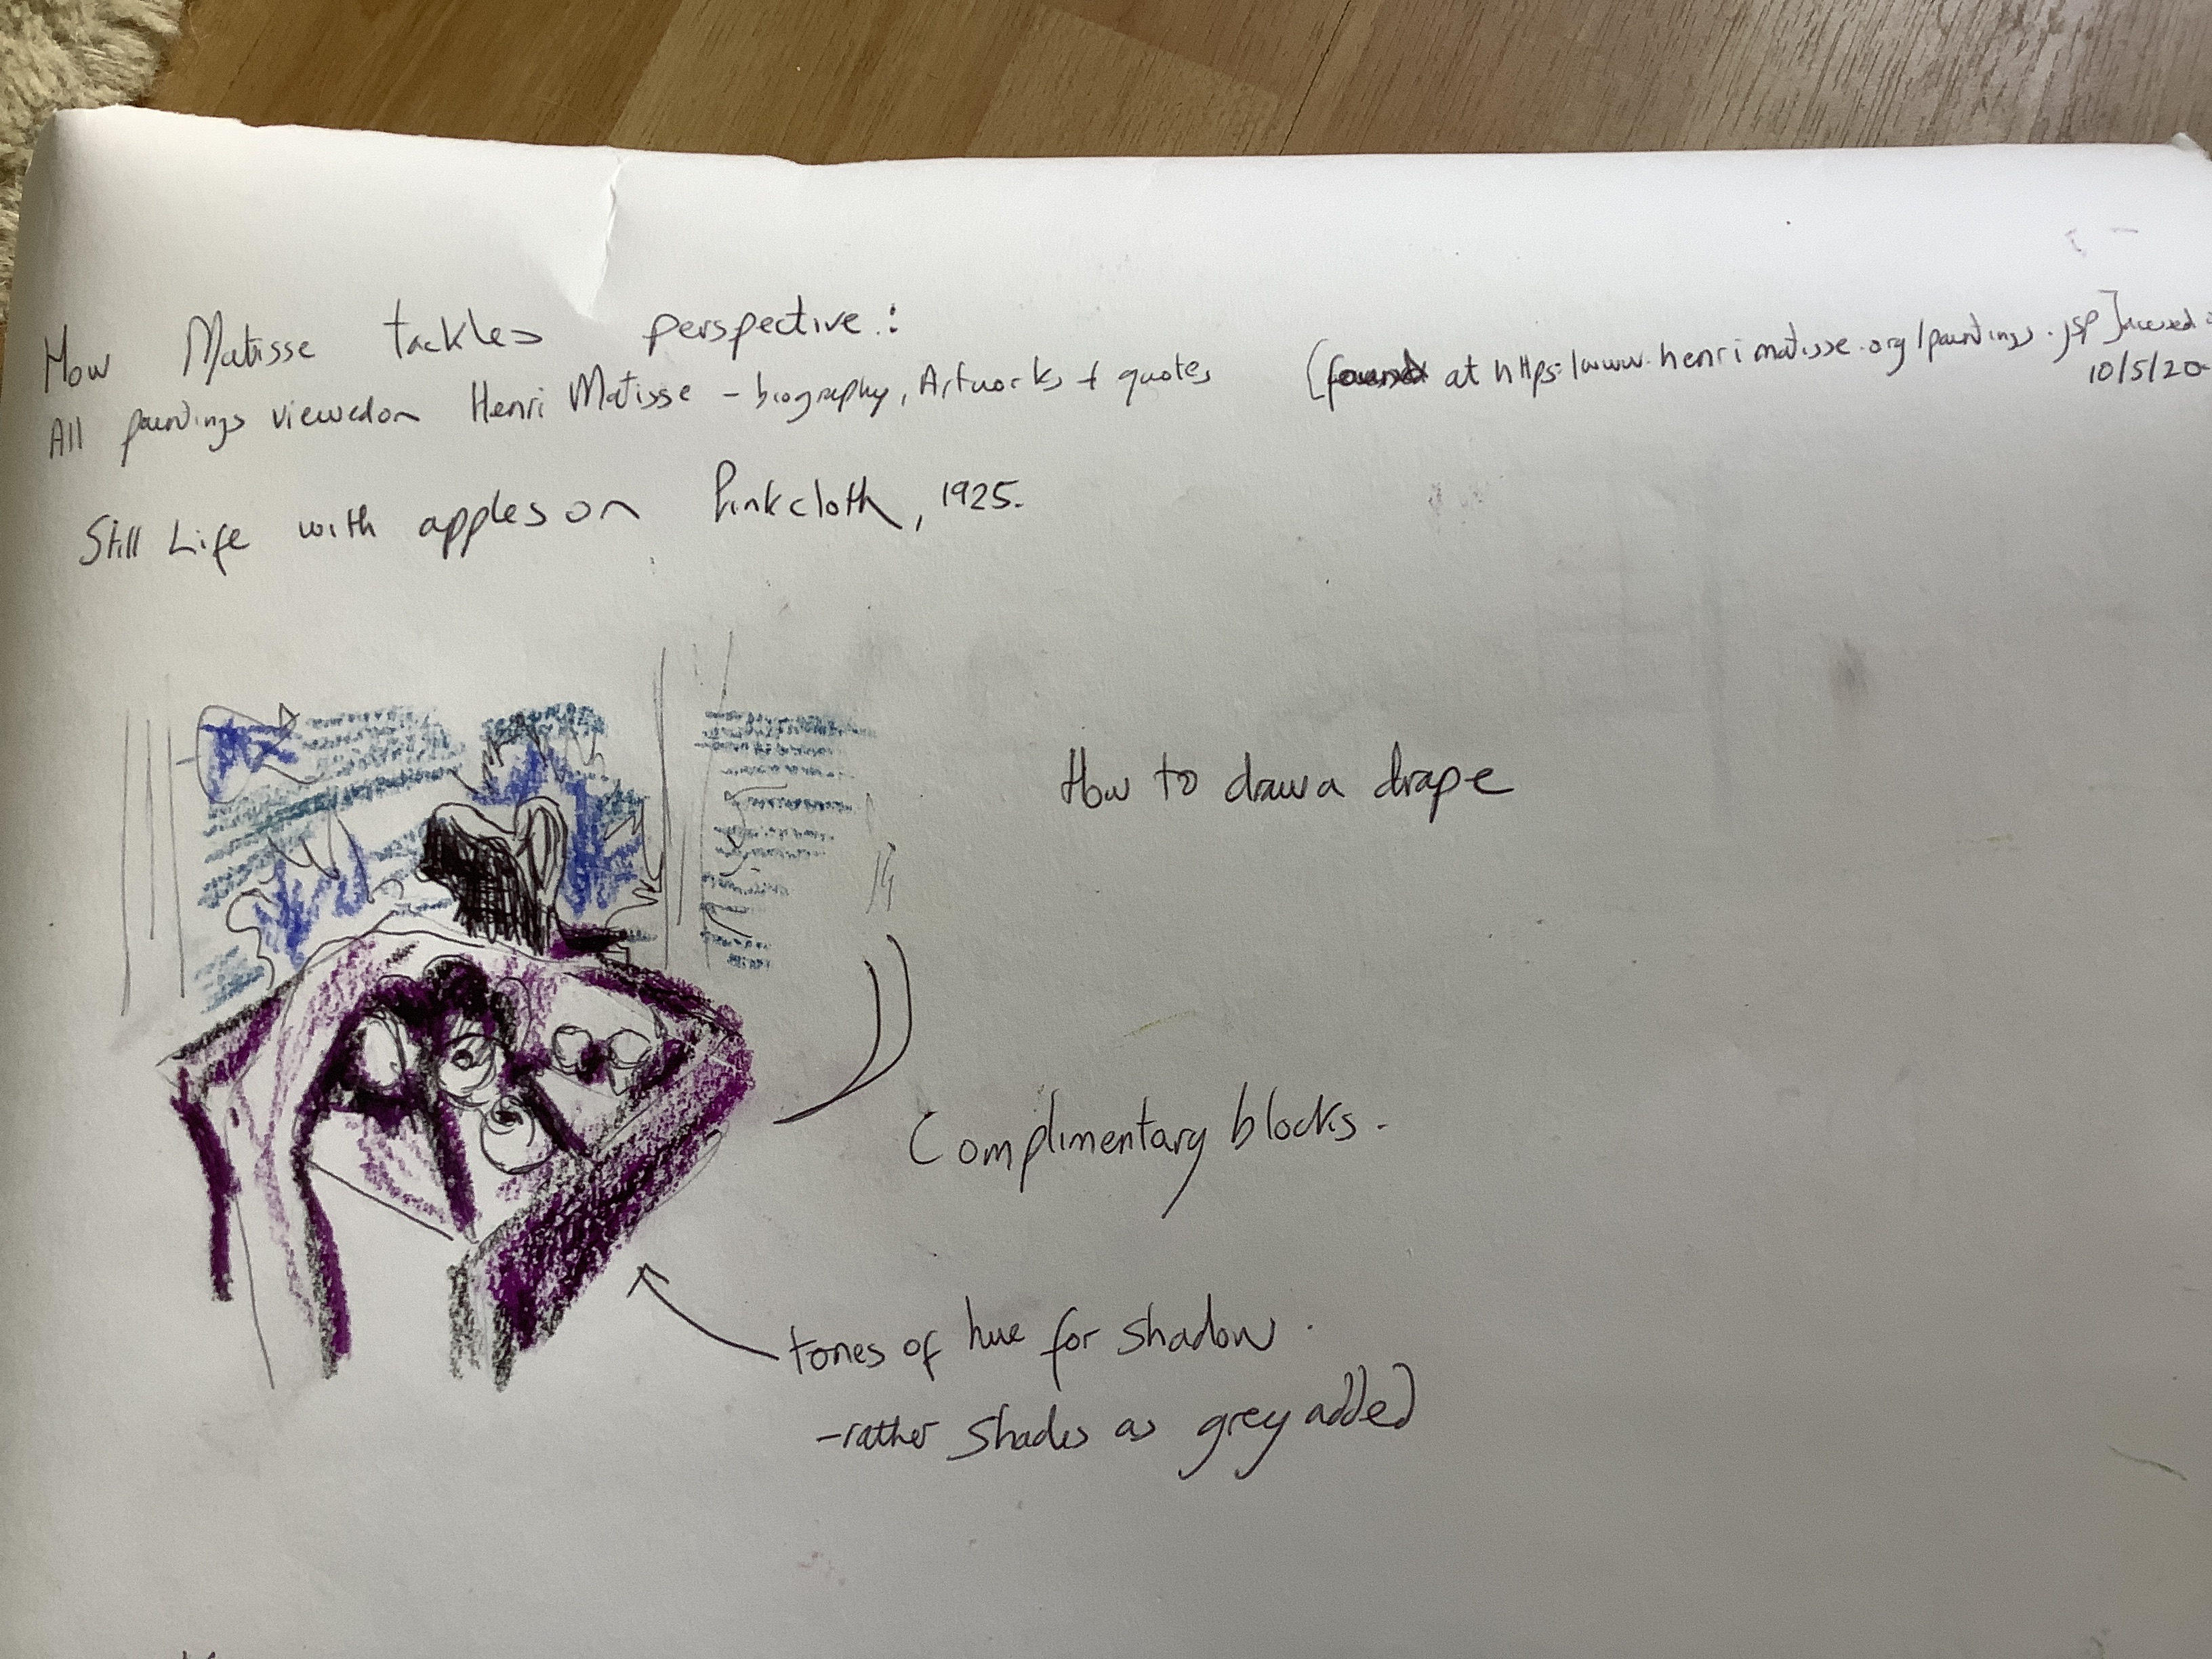 How Matisse tackles perspective:
All paintings viewed on Henri Matisse - biography, Artworks + quotes [found at https:/www.henrimatisse.org/paintings.jsp] accessed
10/5/20
Still Life with apples on Pink cloth, 1925.
How to draw a drape
Complimentary blocks.
tones of hue for shadow.
-rather shades as grey added